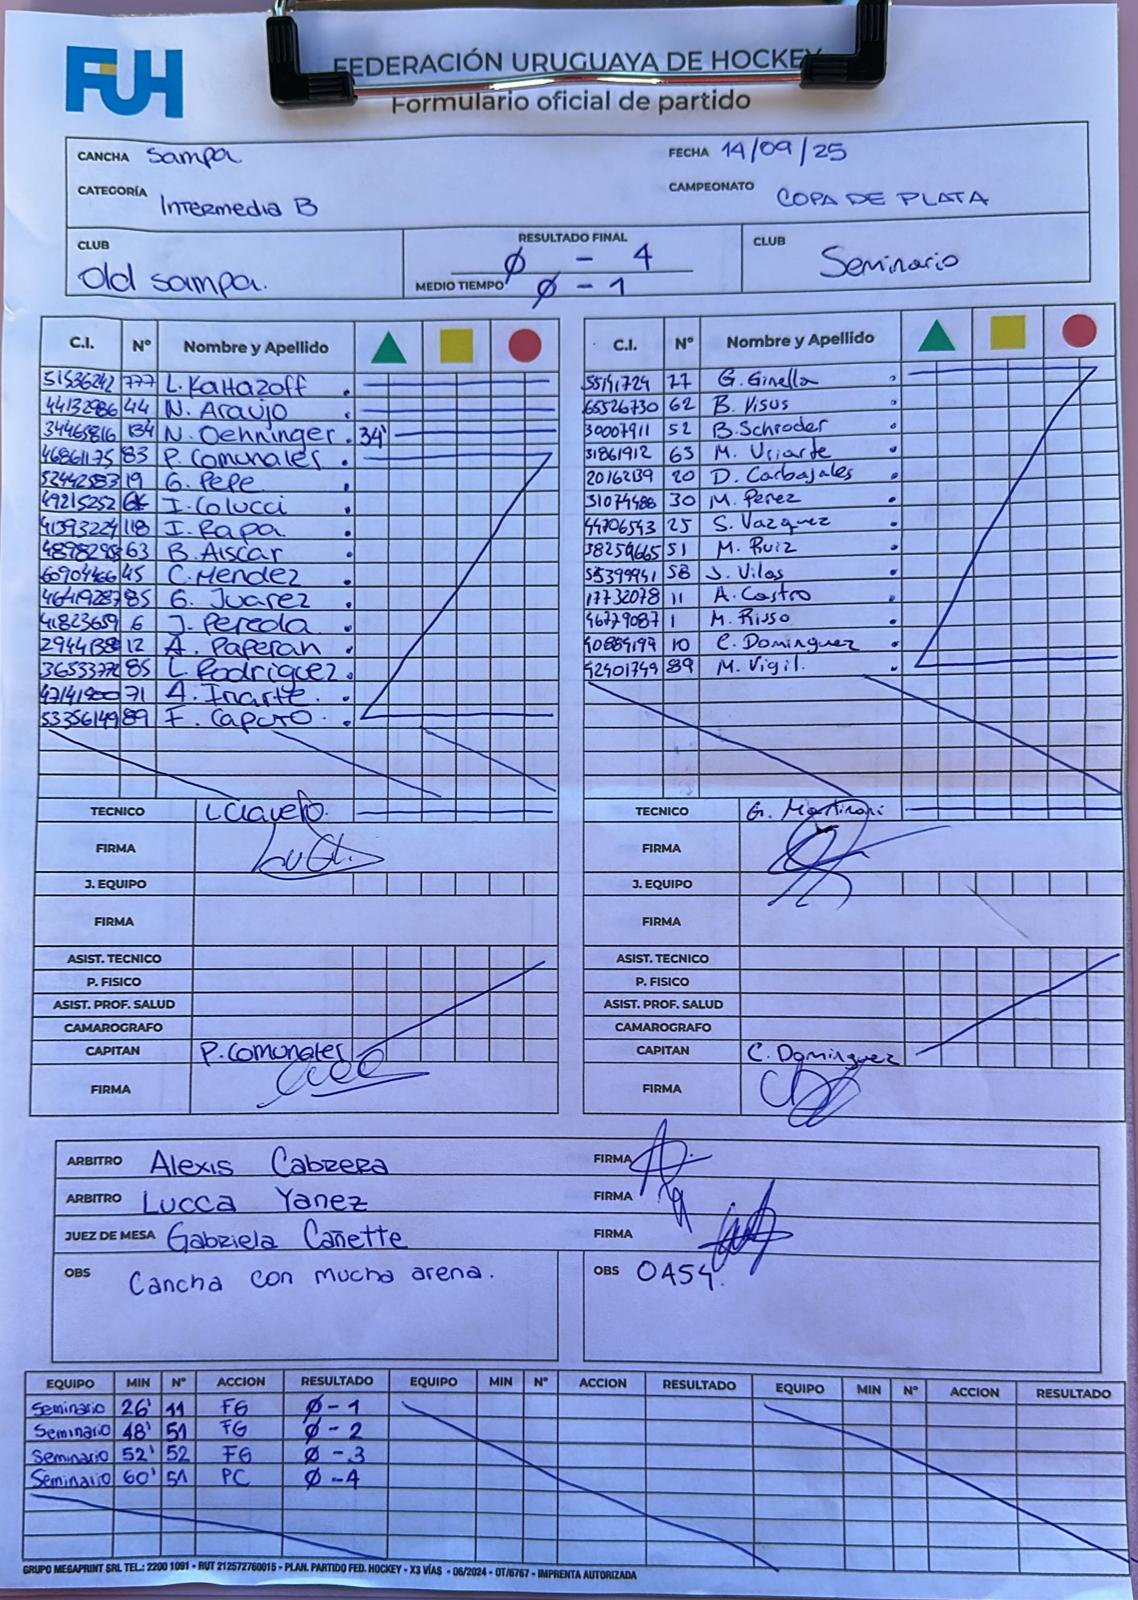 FUH
FEDERACIÓN URUGUAYA DE HOCKEY
Formulario oficial de partido
CANCHA Sampa FECHA 14/09/25
CATEGORÍA Intermedia B CAMPEONATO COPA DE PLATA
CLUB Old Sampa. RESULTADO FINAL Ø - 4 CLUB Seminario
MEDIO TIEMPO Ø - 1
C.I. Nº Nombre y Apellido
51536242 777 L. Kaltazoff
44132986 44 N. Araujo
34465816 134 N. Oehninger 34'
46861175 83 P. Comunales
52442583 19 G. Pepe
49215252 I. Colucci
41393224 118 I. Rapa
48982958 63 B. Aiscar
60904466 45 C. Mendez
46419287 85 G. Juarez
41823659 6 J. Pereda
29441389 12 A. Paperan
36553772 85 L. Rodriguez
47141900 71 A. Iriarte
53356149 89 F. Caputo
TECNICO L Clavelo.
FIRMA
J. EQUIPO
FIRMA
ASIST. TECNICO
P. FISICO
ASIST. PROF. SALUD
CAMAROGRAFO
CAPITAN P. Comunales
FIRMA
C.I. Nº Nombre y Apellido
55191729 77 G. Ginella
65526730 62 B. Visus
30007911 52 B. Schroder
31861912 63 M. Uriarte
20162139 20 D. Carbajales
31074488 30 M. Perez
44706543 25 S. Vazquez
38259665 51 M. Ruiz
55399941 58 J. Vilas
17732078 11 A. Castro
46779087 1 M. Risso
40889199 10 C. Dominguez
42401749 89 M. Vigil.
TECNICO G. Martirani
FIRMA
J. EQUIPO
FIRMA
ASIST. TECNICO
P. FISICO
ASIST. PROF. SALUD
CAMAROGRAFO
CAPITAN C. Dominguez
FIRMA
ARBITRO Alexis Cabrera FIRMA
ARBITRO Lucca Yanez FIRMA
JUEZ DE MESA Gabriela Cañette FIRMA
OBS Cancha con mucha arena. OBS OASY.
EQUIPO MIN Nº ACCION RESULTADO EQUIPO MIN Nº ACCION RESULTADO EQUIPO MIN Nº ACCION RESULTADO
Seminario 26' 11 FG Ø - 1
Seminario 48' 51 FG Ø - 2
Seminario 52' 52 FG Ø - 3
Seminario 60' 51 PC Ø - 4
GRUPO MEGAPRINT SRL TEL.: 2200 1091 - RUT 212572760015 - PLAN. PARTIDO FED. HOCKEY - X3 VÍAS - 06/2024 - OT/6767 - IMPRENTA AUTORIZADA